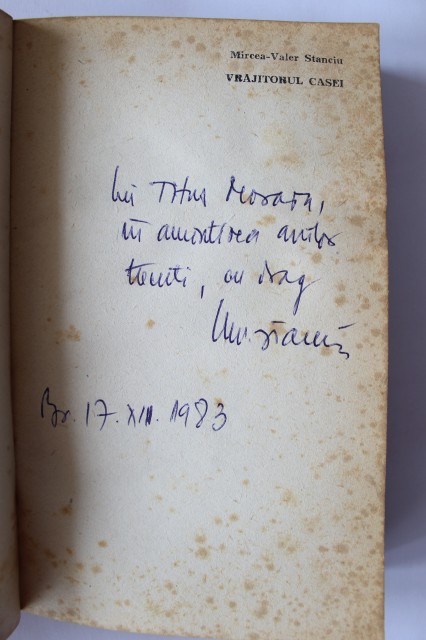 Mircea-Valer Stanciu
VRAJITORUL CASEI
Lui Titus Moraru,
în amintirea anilor
, cu drag
Br. 17. XII. 1983